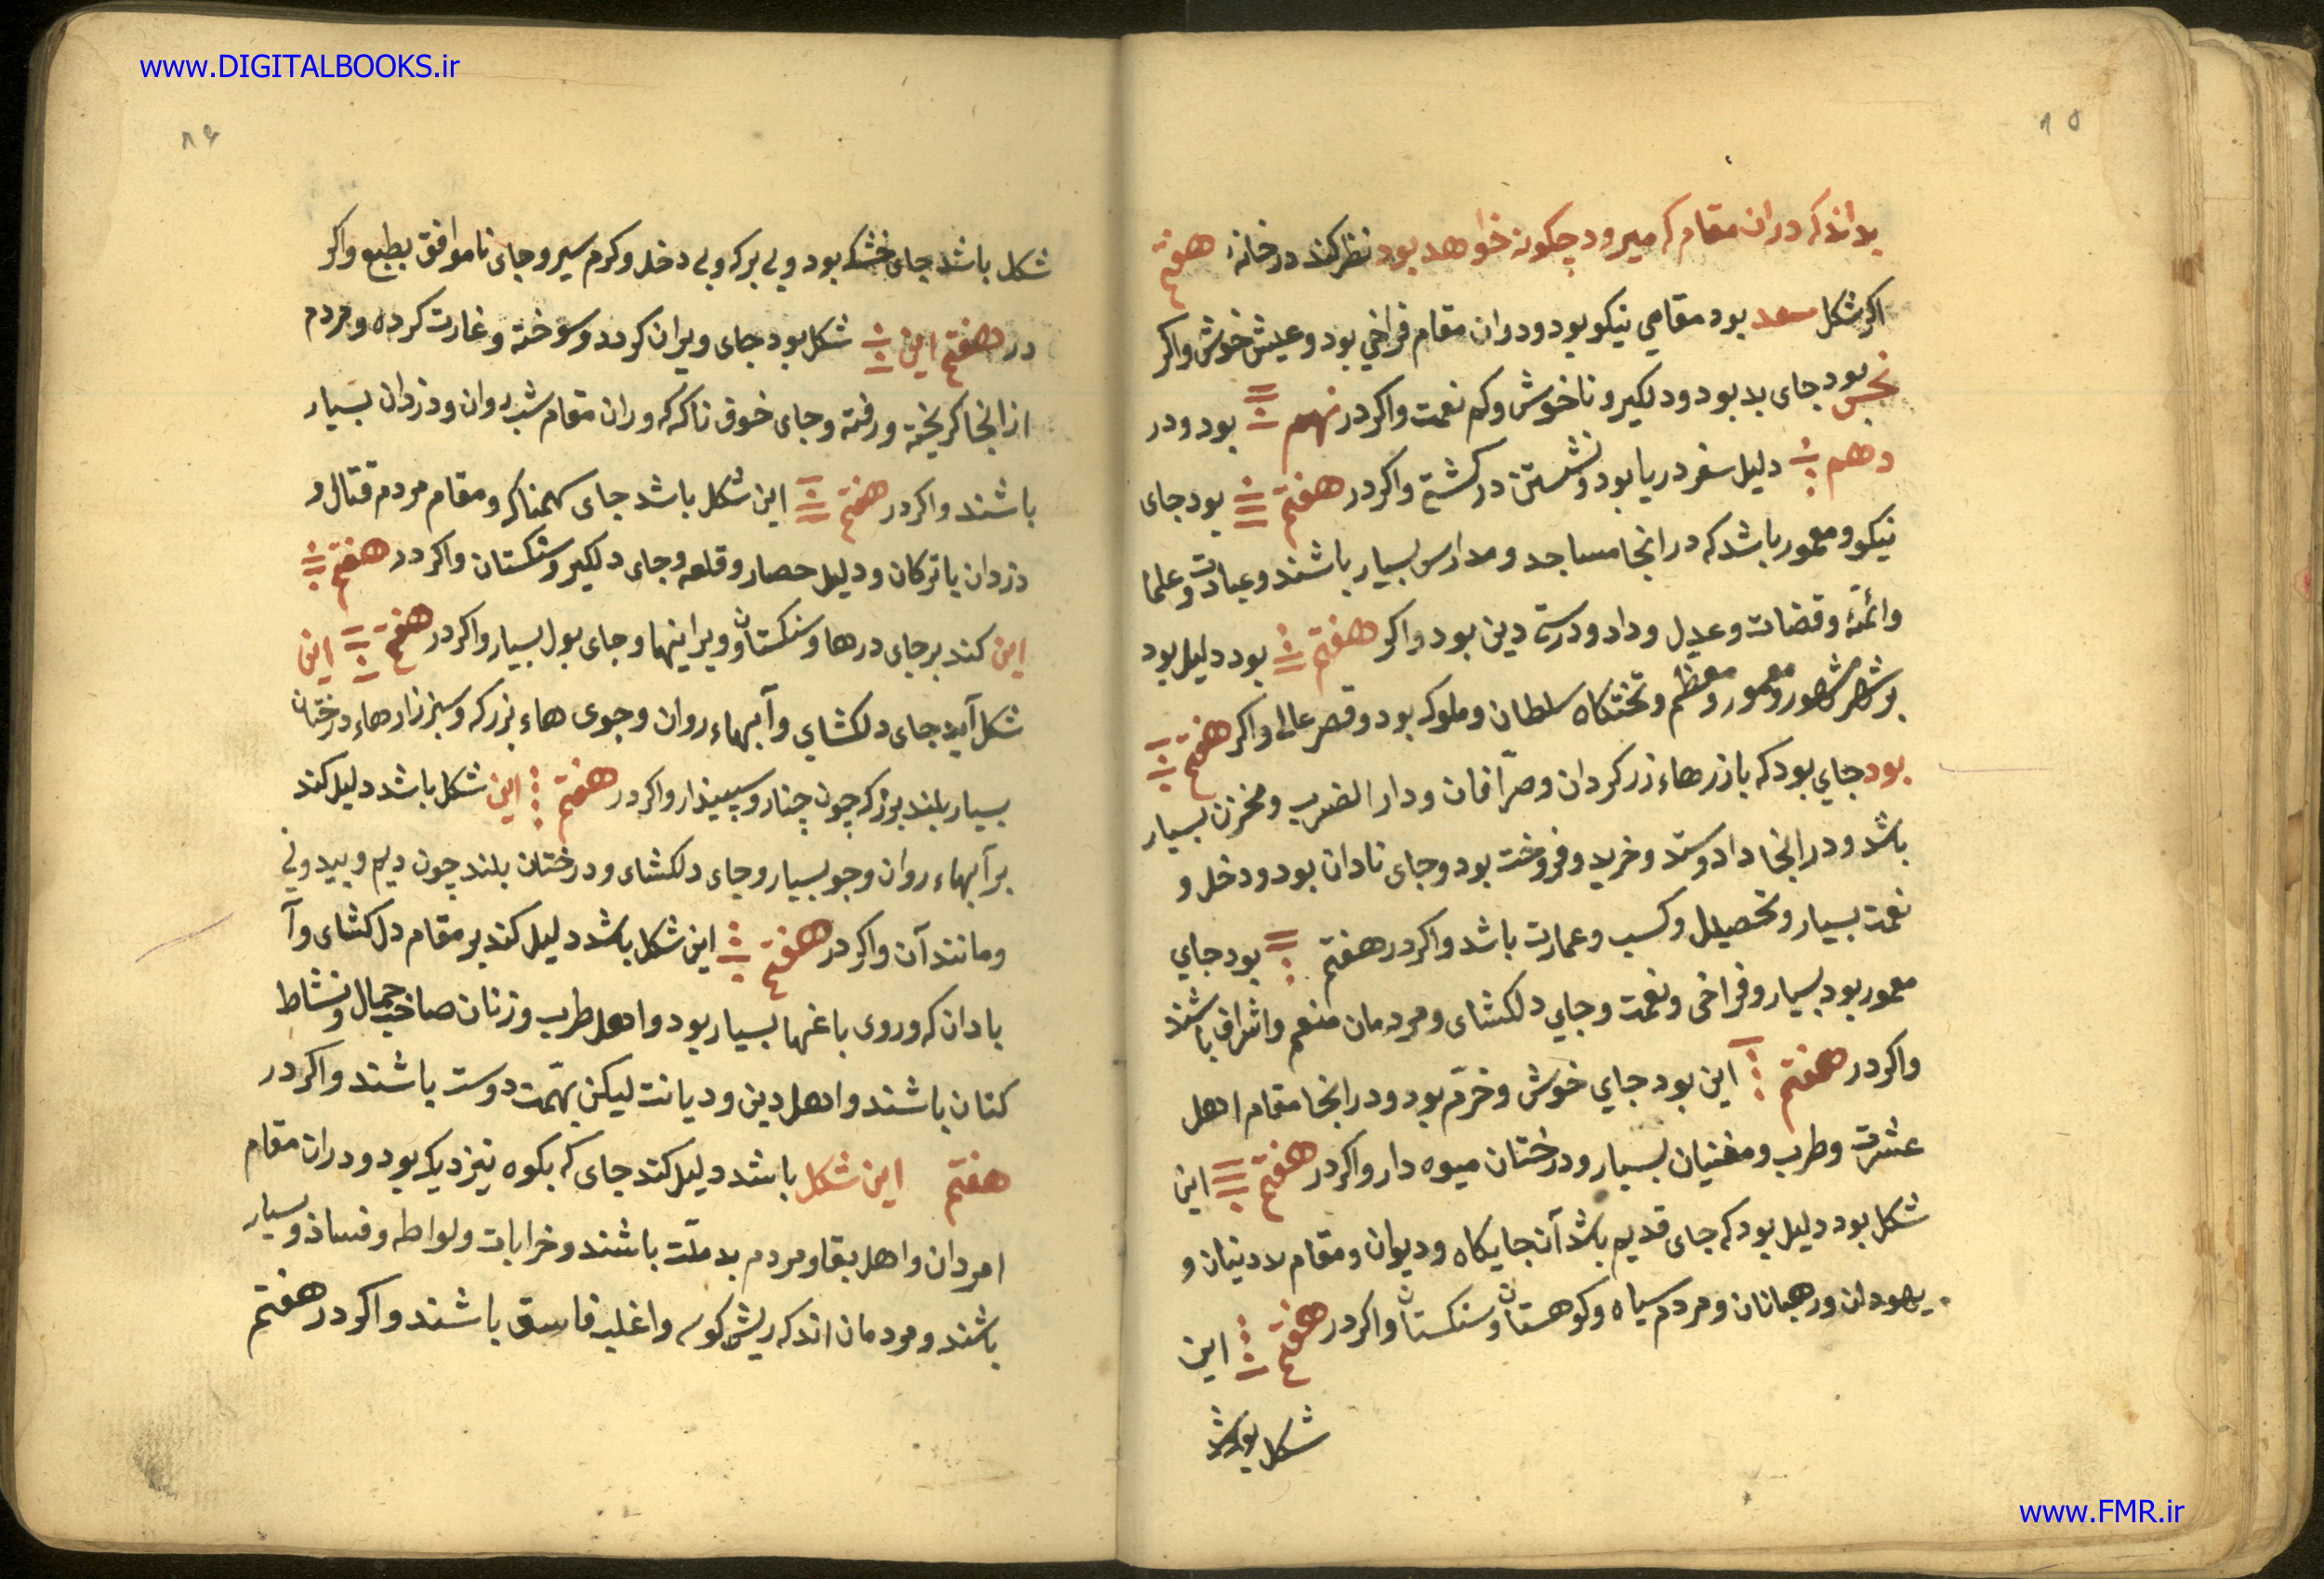 www.DIGITALBOOKS.ir
۸۵
بداند که دران مقام که میرود چکونه خواهد بود نظر کند در خانهٔ هفتم
اکر شکل سعد بود مقامی نیکو بود ودران مقام فراخی بود وعیش خوش واکر
نحس بود جای بد بود ودلکیر وناخوش وکم نعمت واکر در نهم بود ودر
دهم دلیل سفر دریا بود ونشستن در کشتی واکر در هفتم بود جای
نیکو ومعمور باشد که در انجا مساجد ومدارس بسیار باشند وعبادت وعلما
وائمّهٔ وقضات وعدل وداد ودرستی دین بود واکر هفتم بود دلیل بود
بر شهر مشهور ومعمور ومعظم وتختکاه سلطان وملوک بود وقصر عالی واکر هفتم
بود جای بود که بازرهاء زرکردان وصرّافان ودار الضرب ومخزن بسیار
باشد ودر انجا داد وستد وخرید وفروخت بود وجای نادان بود ودخل و
نعمت بسیار وتحصیل وکسب وعمارت باشد واکر در هفتم بود جای
معمور بود بسیار وفراخی ونعمت وجای دلکشای ومردمان منعم واشراف باشند
واکر در هفتم این بود جای خوش وخرّم بود ودر انجا مقام اهل
عشرت وطرب ومغنیان بسیار ودرختان میوه دار واکر در هفتم این
شکل بود دلیل بود که جای قدیم باشد آن جایکاه ودیوان ومقام لادینان و
یهودان ورهبانان ومردم سیاه وکوهستان وسنکستان واکر در هفتم این
شکل بود
۸۶
شکل باشد جای خشک بود وبی برکه وبی دخل وکرم سیر وجای ناموافق بطبع واکر
در هفتم این شکل بود جای ویران کردد وسوخته وغارت کرده ومردم
از انجا کریخته ورفته وجای خوف ناک که وران مقام شب روان ودزدان بسیار
باشند واکر در هفتم این شکل باشد جای سهمناک ومقام مردم قتال و
دزدان یا ترکان ودلیل حصار وقلعه وجای دلکیر وسنکستان واکر در هفتم
این کند بر جای درها وسنکستان وویراینها وجای بول بسیار واکر در هفتم این
شکل آید جای دلکشای وآبهاء روان وجوی هاء بزرک وسبززارهاء درختان
بسیار بلند بزرک چون چنار وسپیدار واکر در هفتم این شکل باشد دلیل کند
بر آبهاء روان وجو بسیار وجای دلکشای ودرختان بلند چون دیم وبید ونی
ومانند آن واکر در هفتم این شکل باشد دلیل کند بر مقام دل کشای وآ
بادان که وروی باغها بسیار بود واهل طرب وزنان صاحب جمال ونشاط
کنان باشند واهل دین ودیانت لیکن بهمّت دوست باشند واکر در
هفتم این شکل باشد دلیل کند جای که بکوه نیزدیک بود ودران مقام
امردان واهل بقا ومردم بد ملّت باشند وخرابات ولواطه وفساد وبسیار
باشند ومردمان اندک ریش کوسه واغلب فاسق باشند واکر در هفتم
www.FMR.ir